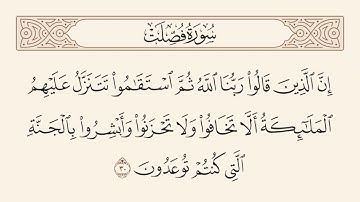 سُورَةُ فُصِّلَتْ
إِنَّ ٱلَّذِينَ قَالُوا۟ رَبُّنَا ٱللَّهُ ثُمَّ ٱسْتَقَٰمُوا۟ تَتَنَزَّلُ عَلَيْهِمُ
ٱلْمَلَٰٓئِكَةُ أَلَّا تَخَافُوا۟ وَلَا تَحْزَنُوا۟ وَأَبْشِرُوا۟ بِٱلْجَنَّةِ
ٱلَّتِى كُنتُمْ تُوعَدُونَ ٣٠